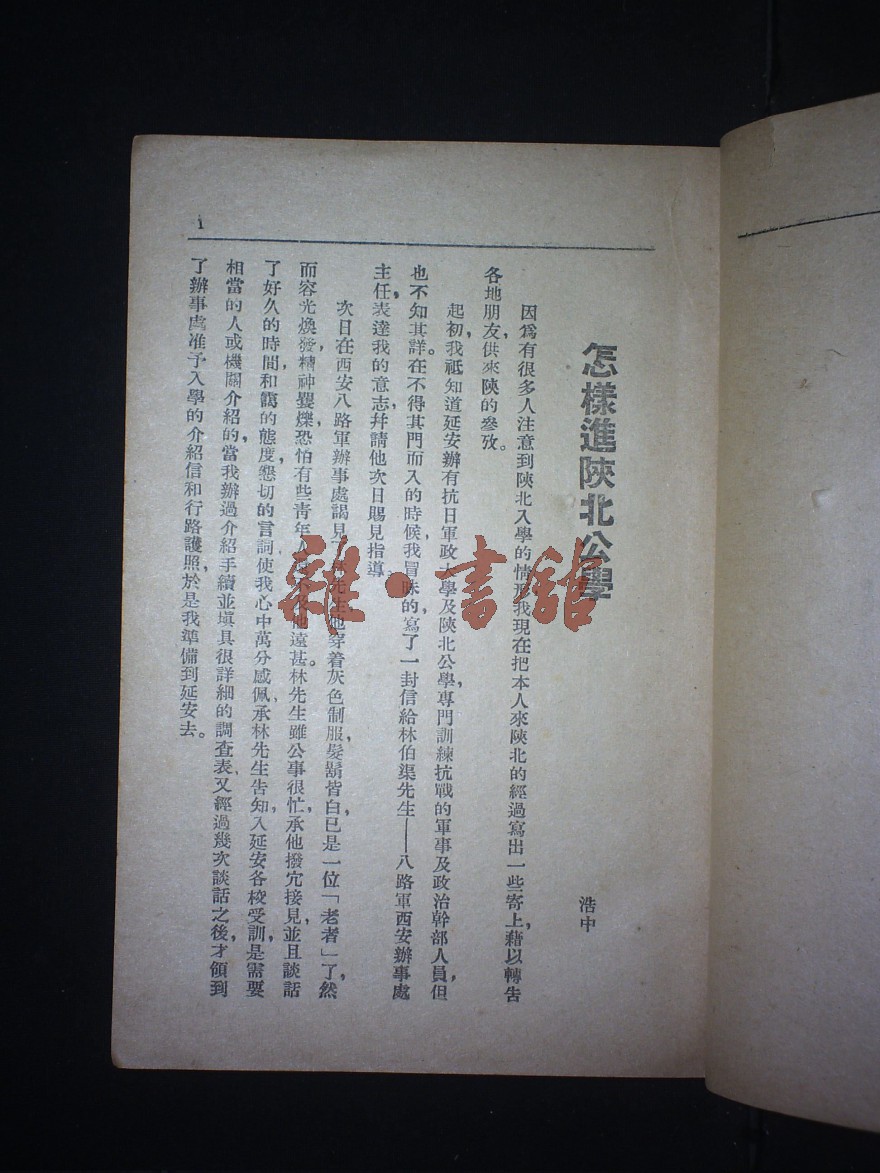 怎樣進陝北公學
浩中
因爲有很多人注意到陝北入學的情形，我現在把本人來陝北的經過寫出一些寄上，藉以轉告
各地朋友，供來陝的參攷。
起初，我祇知道延安辦有抗日軍政大學及陝北公學，專門訓練抗戰的軍事及政治幹部人員，但
也不知其詳。在不得其門而入的時候，我冒昧的寫了一封信給林伯渠先生——八路軍西安辦事處
主任，表達我的意志，幷請他次日賜見指導。
次日在西安八路軍辦事處謁見了林先生，他穿着灰色制服，髮鬍皆白，已是一位「老者」了，然
而容光煥發，精神矍爍，恐怕有些靑年人 他遠甚。林先生雖公事很忙，承他撥冗接見，並且談話
了好久的時間，和藹的態度，懇切的言詞，使我心中萬分感佩，承林先生告知，入延安各校受訓，是需要
相當的人或機關介紹的，當我辦過介紹手續，並塡具很詳細的調查表，又經過幾次談話之後，才領到
了辦事處准予入學的介紹信和行路護照，於是我準備到延安去。
1
雜·書館